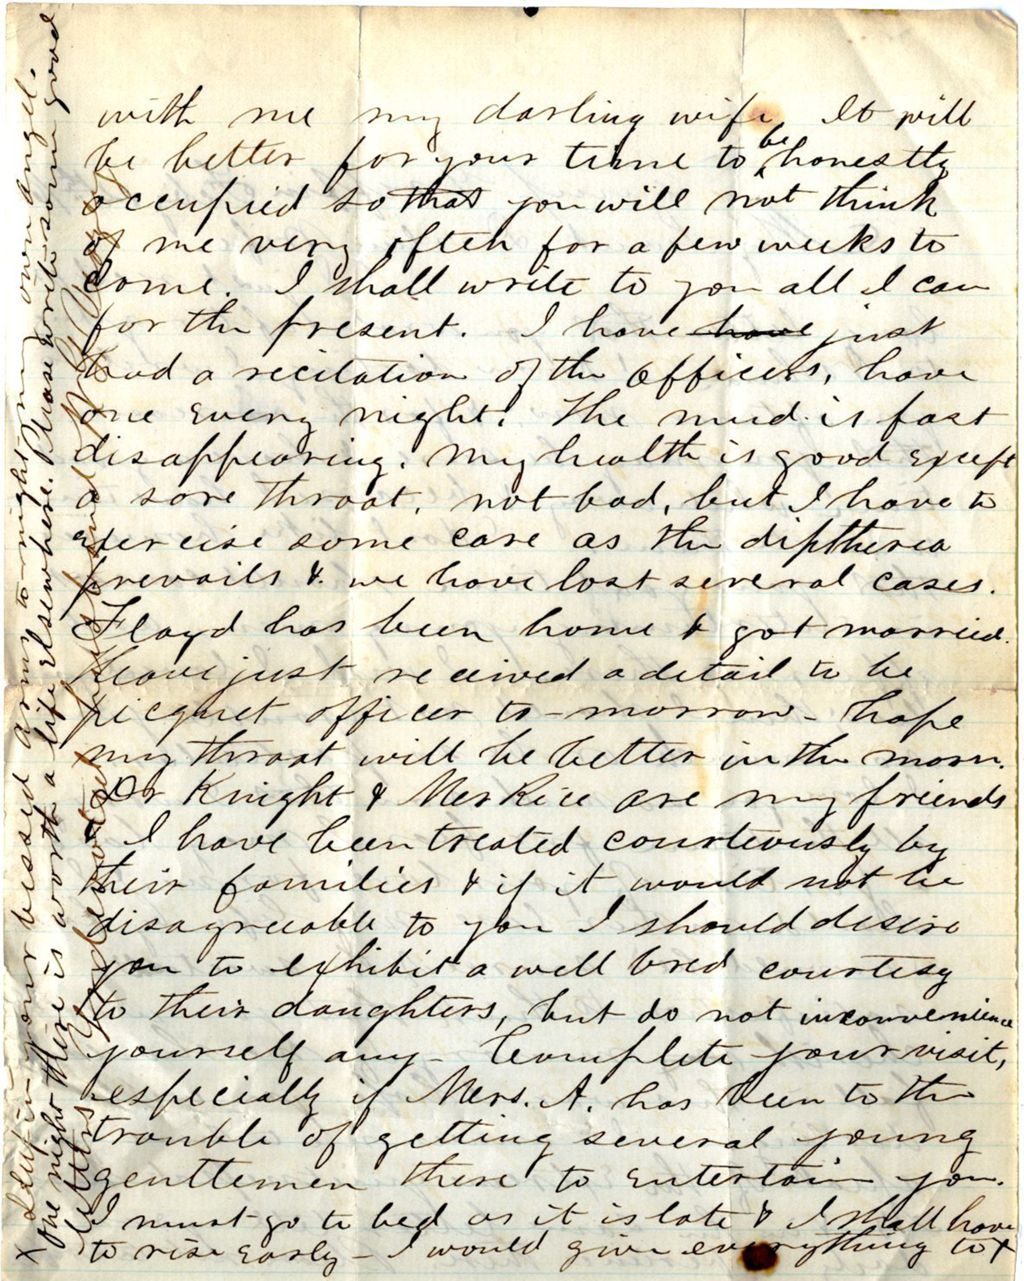 with me my darling wife, It will
be better for your time to be honestly
occupied so that you will not think
of me very often for a few weeks to
come. I shall write to you all I can
for the present. I have have just
had a recitation of the officers, have
one every night. The mud is fast
disappearing. My health is good except
a sore throat, not bad, but I have to
exercise some care as the diptherea
prevails & we have lost several cases.
Floyd has been home & got married.
Have just received a detail to be
picquet officer to-morrow - hope
my throat will be better in the morn.
Dr Knight & Mer Rice are my friends
I have been treated courteously by
their families & if it would not be
disagreeable to you I should desire
you to exhibit a well bred courtesy
to their daughters, but do not inconvenience
yourself any - Complete your visit,
especially if Mers. A. has been to the
trouble of getting several young
gentlemen there to entertain you.
I must go to bed as it is late & I shall have
to rise early - I would give everything to x
x sleep in your blessed arms to-night my own angel.
One night there is worth a life elsewhere. Please write some good
letters Your devoted husband